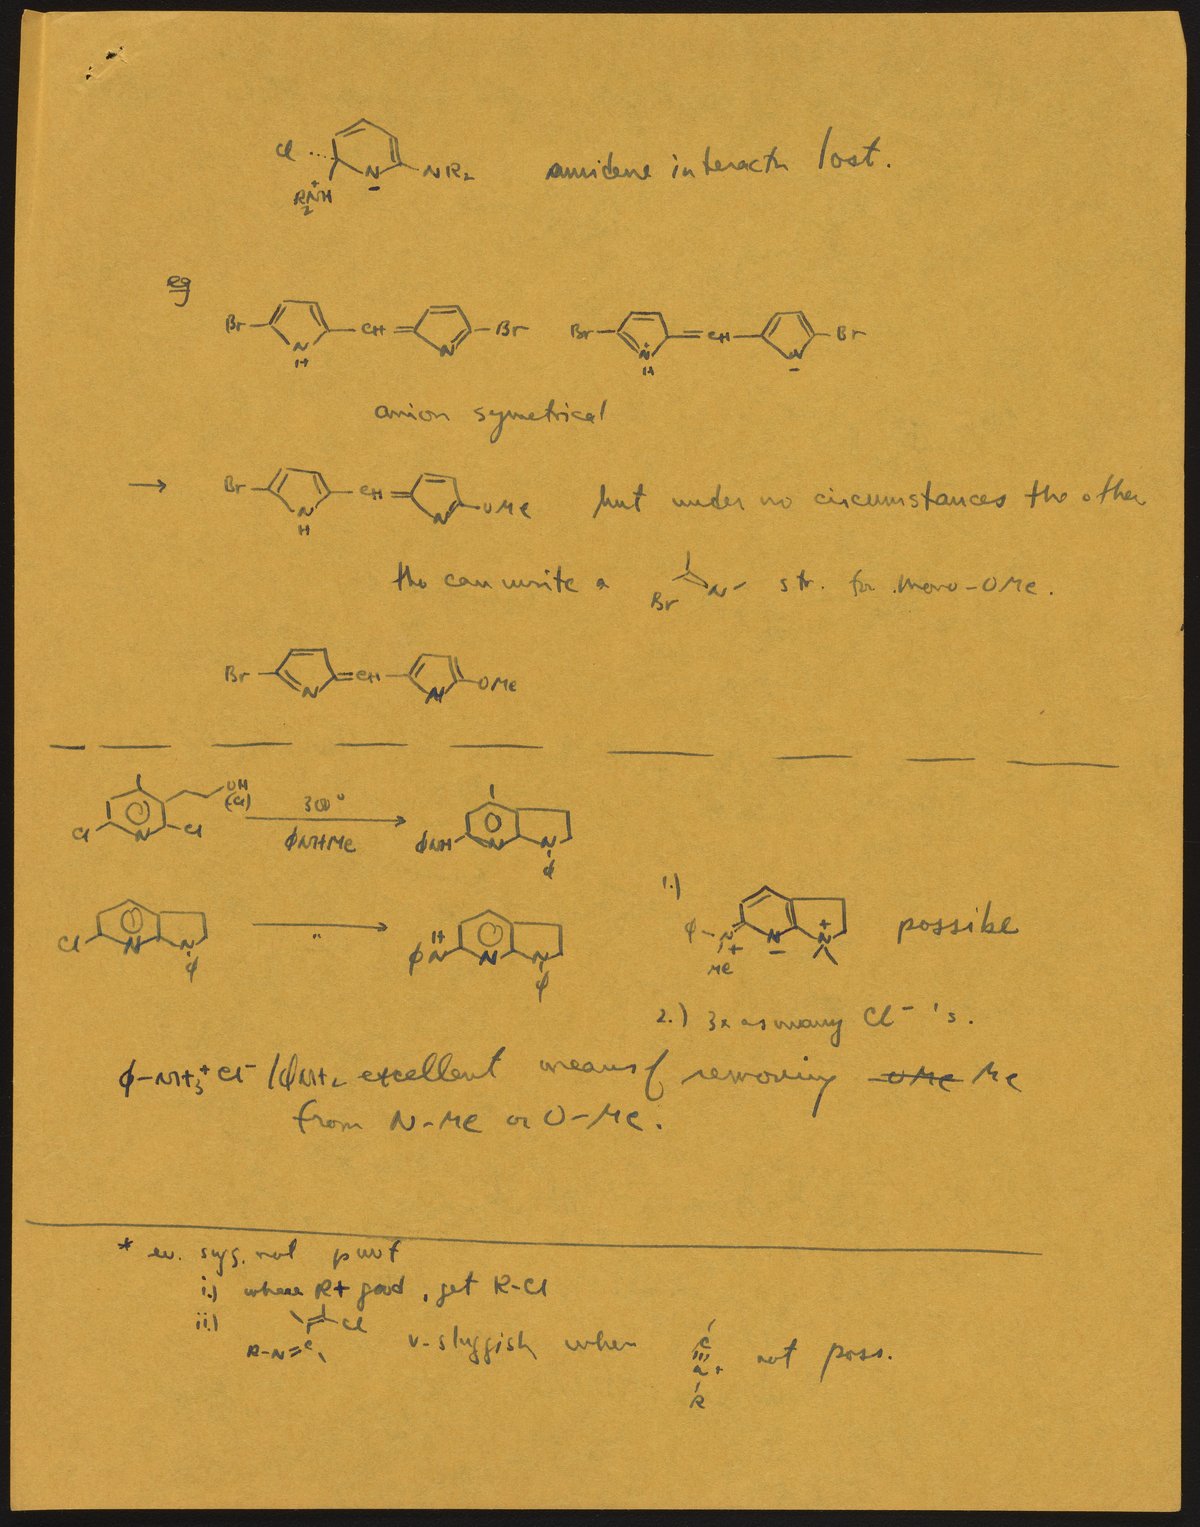 Cl N NR2 amidene interactn lost.
R2N+H
eg
Br N H CH N Br Br N+ H CH N − Br
anion symetrical
→ Br N H CH N OMe but under no circumstances the other
tho can write a Br N− str. for mono-OMe.
Br N CH N OMe
OH
(Cl)
Cl N Cl 300° ΦNHMe ΦNH N N Φ
Cl N N Φ " ΦNH N N Φ
1.) Φ-N+ Me N − N+ possible
2.) 3x as many Cl−'s.
Φ-NH3+ Cl− / ΦNH2 excellent means of removing OMe Me
from N-Me or O-Me.
* ev. sugg. not
i.) where R+ good, get R-Cl
ii.) Cl
R-N=C v-sluggish when C≡N+ R not poss.